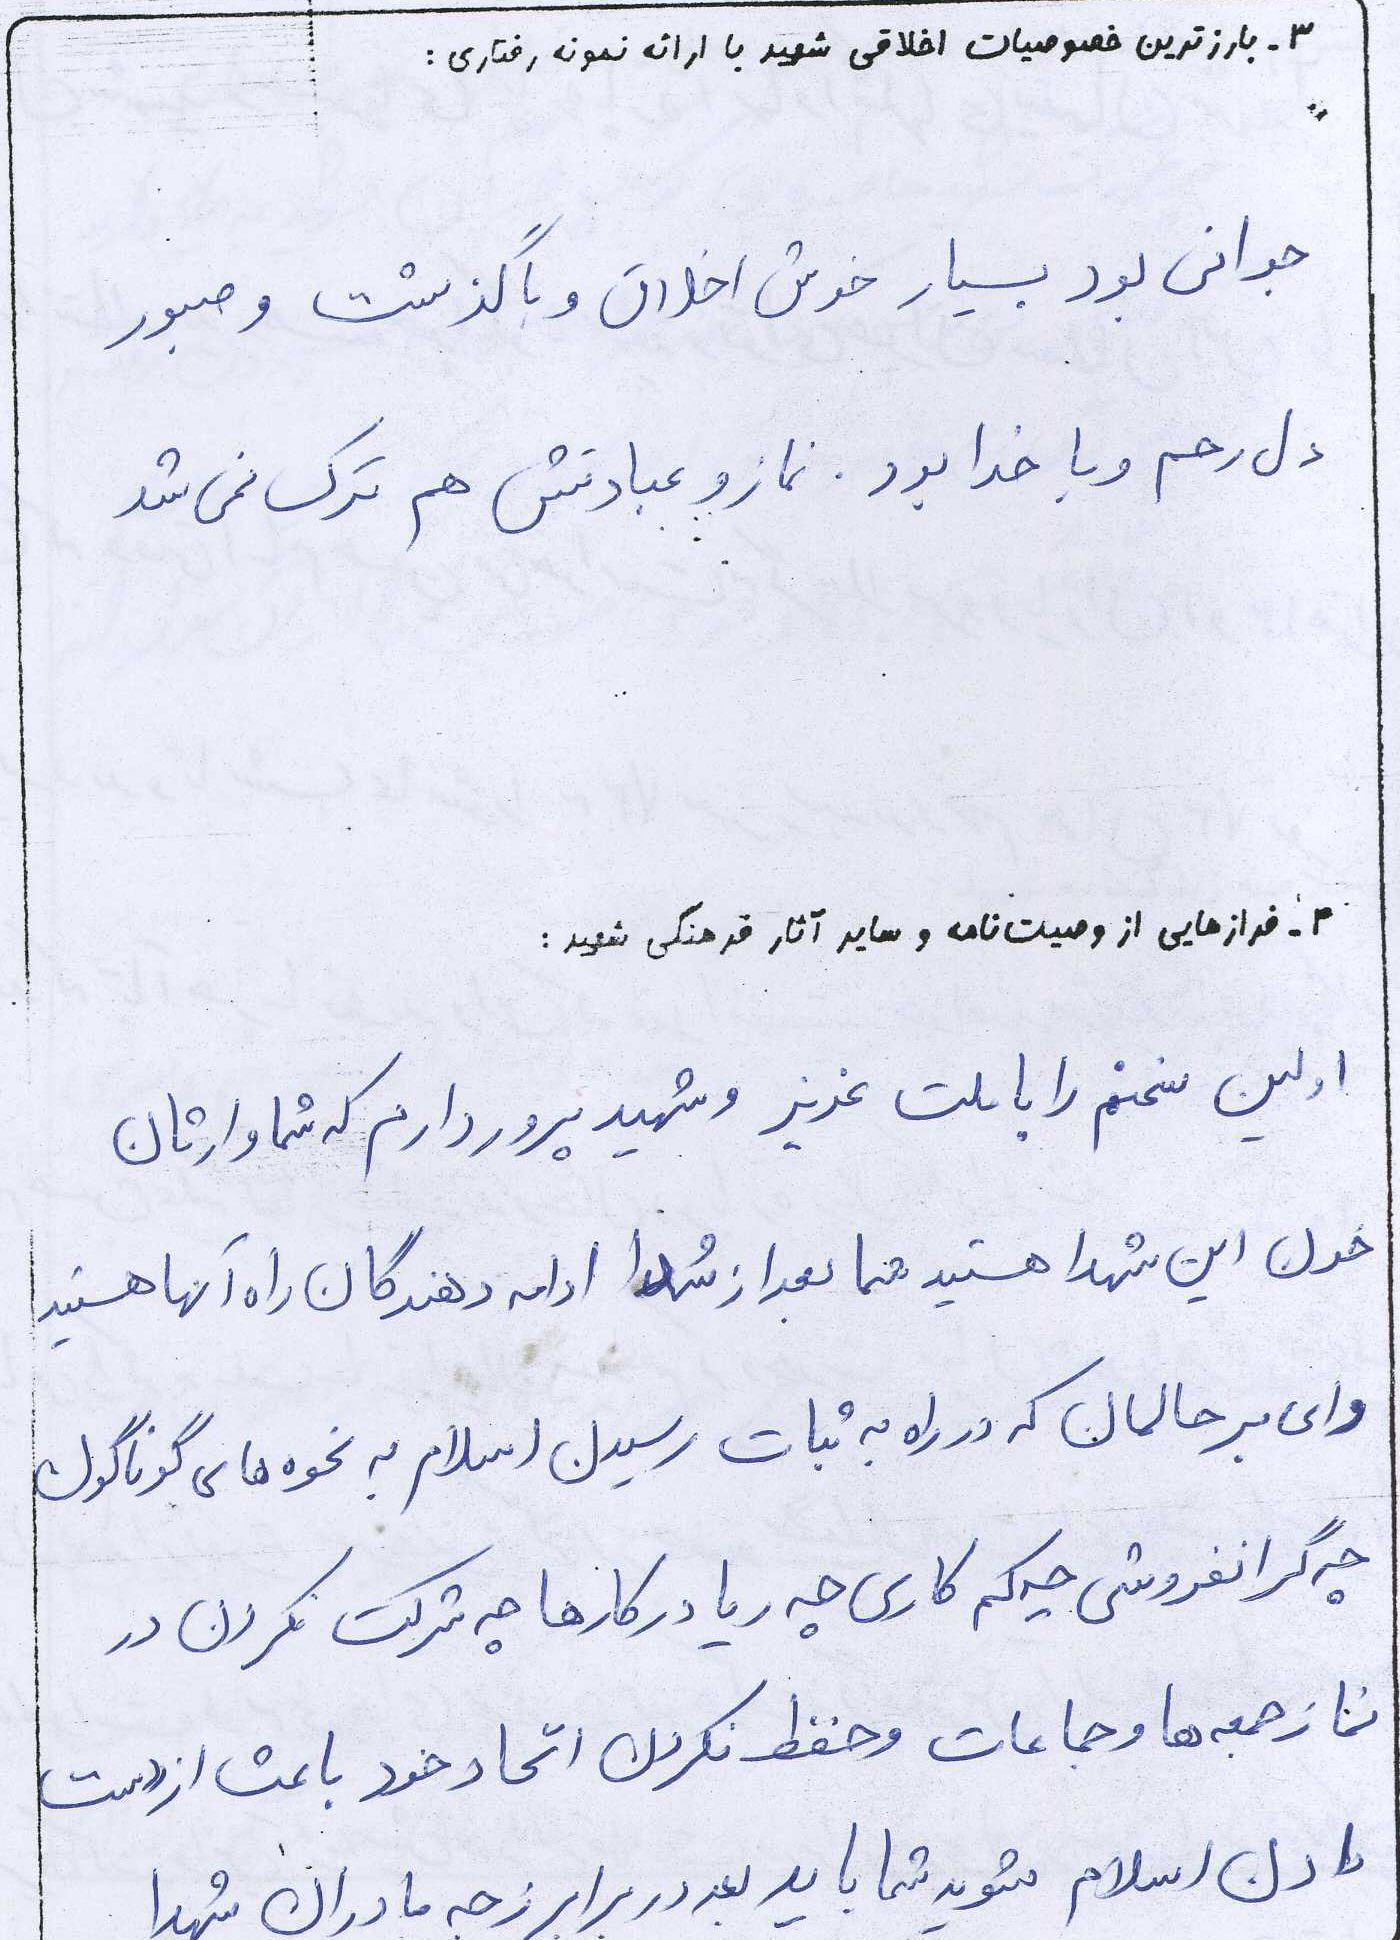 ۳ـ بارزترین خصوصیات اخلاقی شهید با ارائه نمونه رفتاری :
جوانی بود بسیار خوش اخلاق و با گذشت و صبور
دل رحم و با خدا بود . نماز و عبادتش هم ترک نمی شد
۴ـ فرازهایی از وصیت‌نامه و سایر آثار فرهنگی شهید :
اولین سخنم را با ملت عزیز و شهید پرور دارم که شما وارثان
خون این شهدا هستید شما بعد از شهدا ادامه دهندگان راه آنها هستید
وای بر حالمان که در راه به ثبات رسیدن اسلام به نحوه های گوناگون
چه گرانفروشی چه کم کاری چه ریا در کارها چه شرکت نکردن در
نماز جمعه ها و جماعات و حفظ نکردن اتحاد خود باعث از دست
دادن اسلام شوید شما باید بعد در برابر زجه مادران شهدا